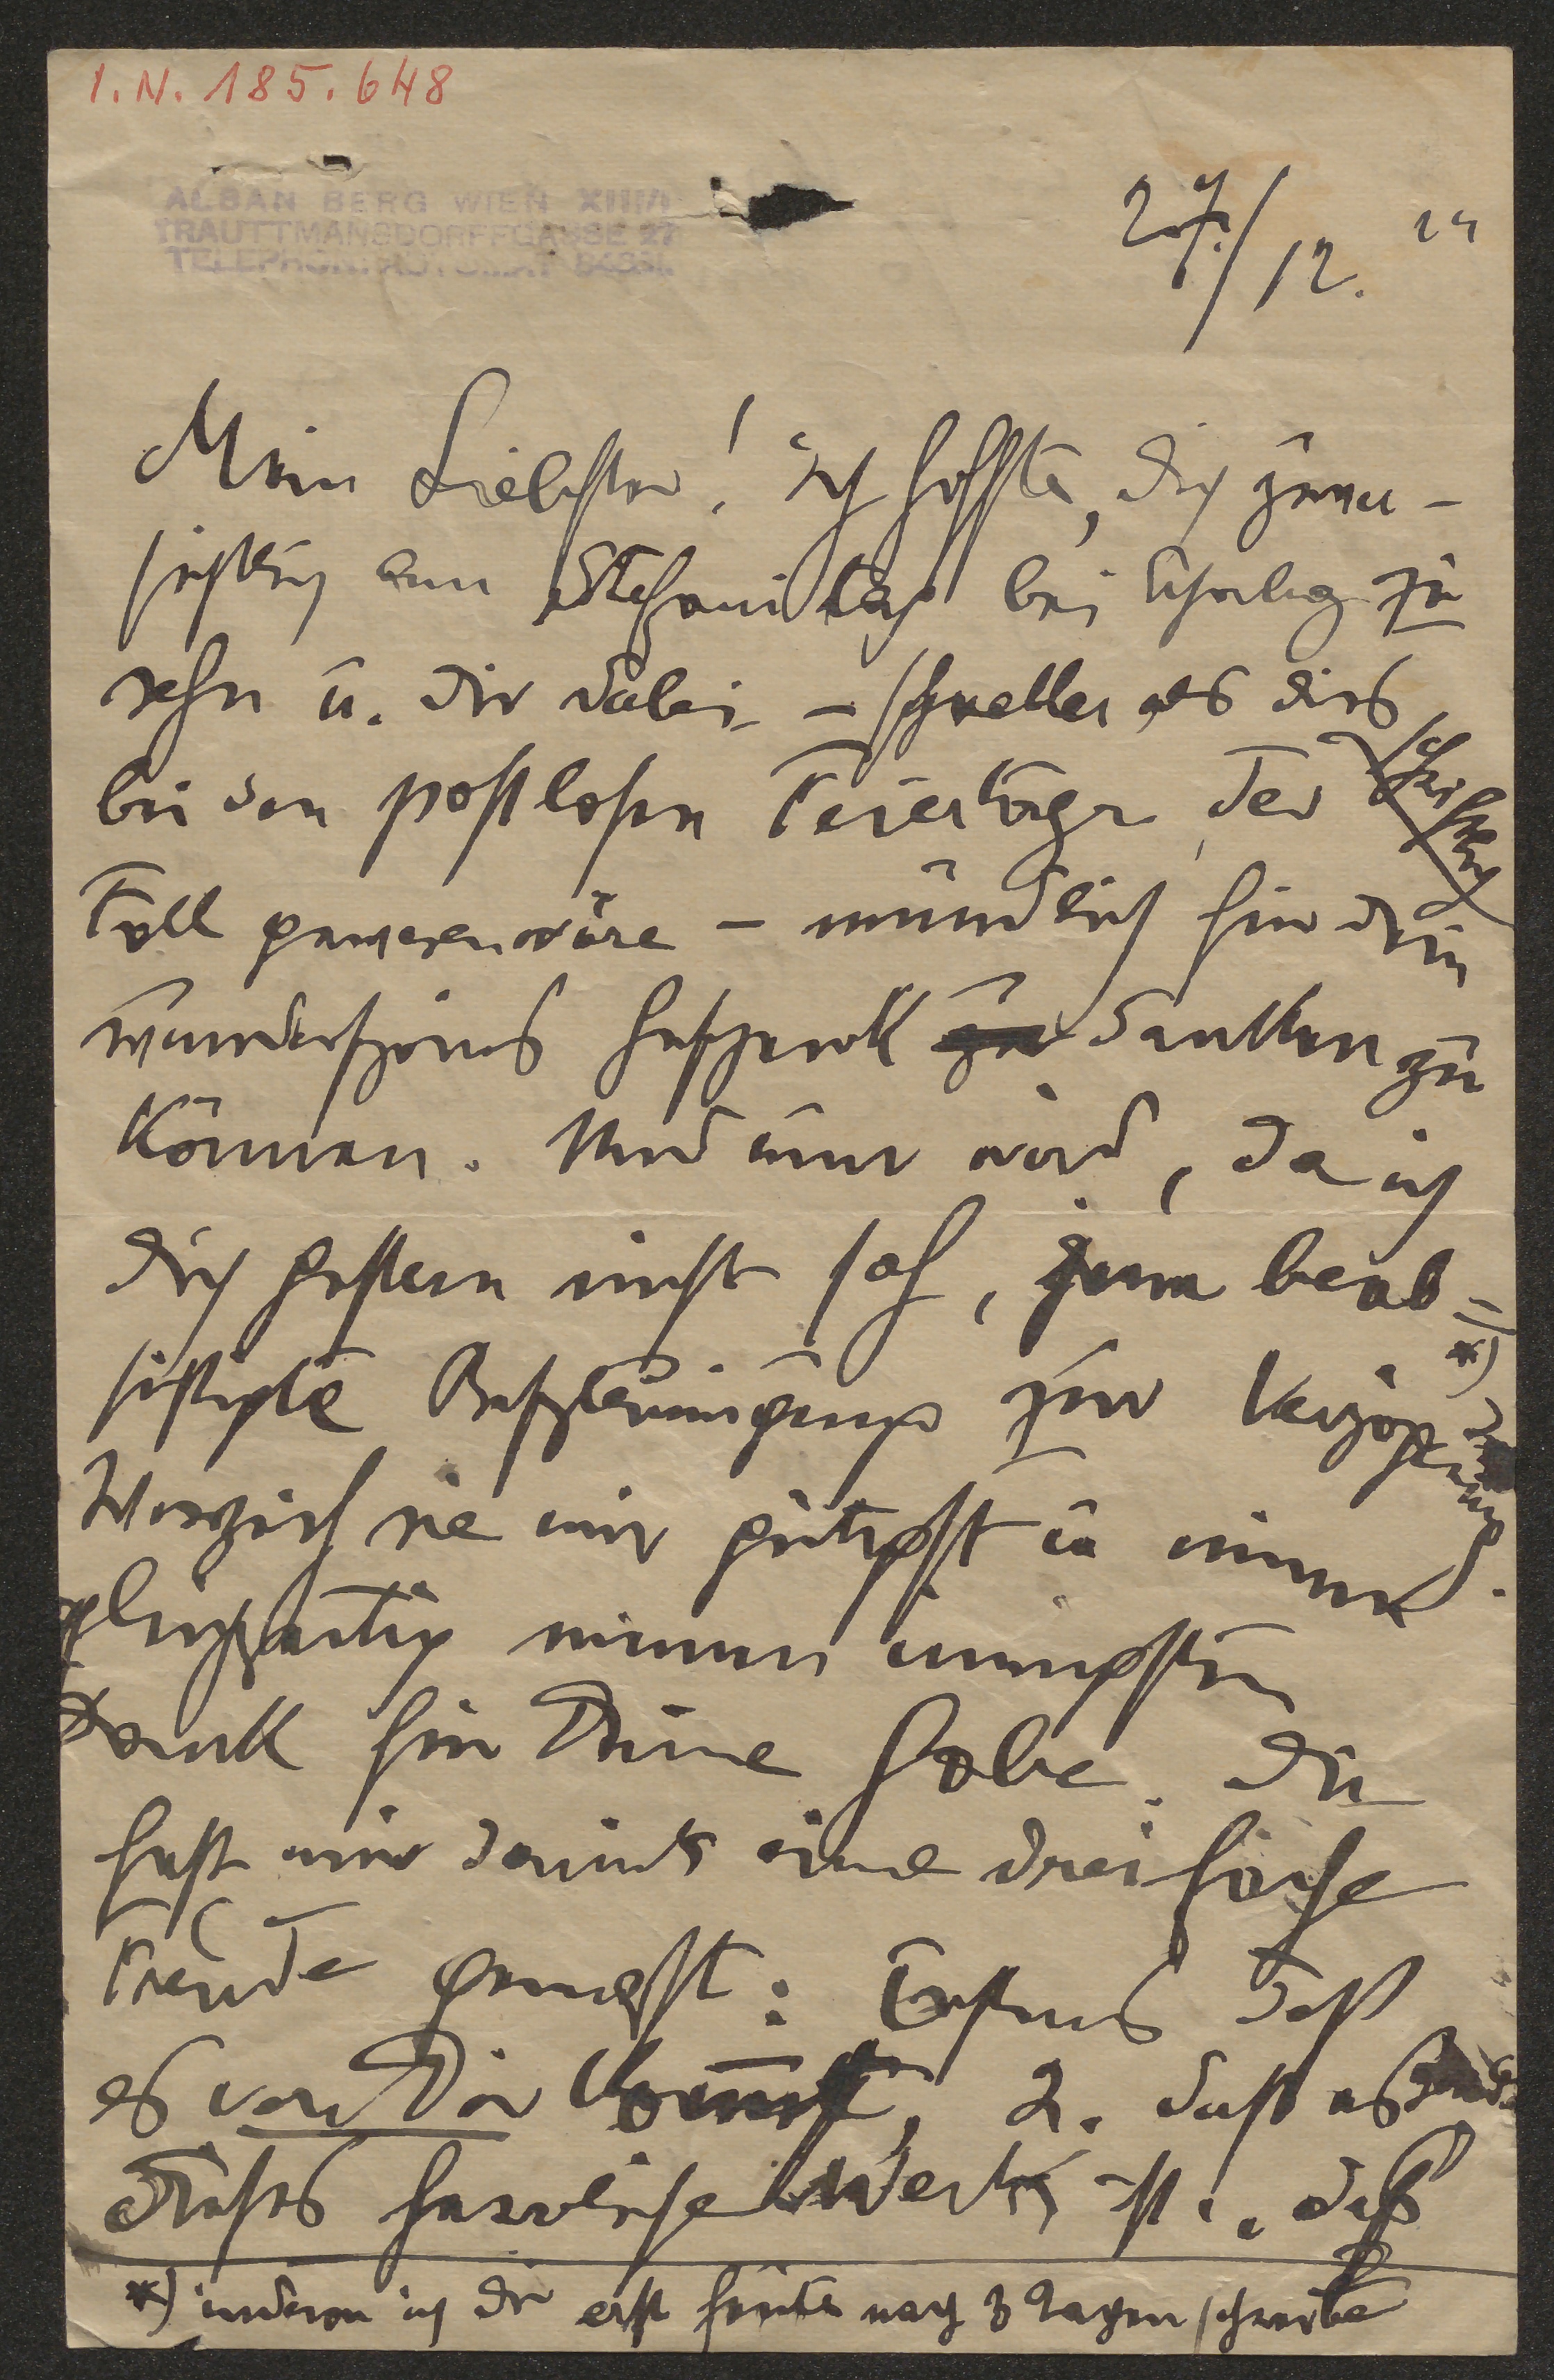 I.N. 185.648
ALBAN BERG WIEN XIII/1
TRAUTTMANSDORFFGASSE 27
TELEPHON:
27./12. 24
Mein Liebster! Ich hoffte, dich zuver-
sichtlich am Stefanitag bei Schönberg zu
sehn u. dir dabei – schneller als dies
bei den postlosen Feiertage der schriftlich
Fall gewesen wäre – mündlich für dein
wunderschönes Geschenk zu danken zu
können. Und nun wird, da ich
dich gestern nicht sah, jene beab-
sichtigte Beschleunigung zur Verzögerung. *)
Verzeih sie mir gütigst u nimm
gleichzeitig meinen innigsten
Dank für Deine Gabe. Du
hast mir damit eine dreifache
Freude gemacht: Erstens daß
es von Dir kommt, 2. daß es
dieses herrliche Werk ist. daß
*) indem ich dir erst heute nach 3 Tagen schreibe